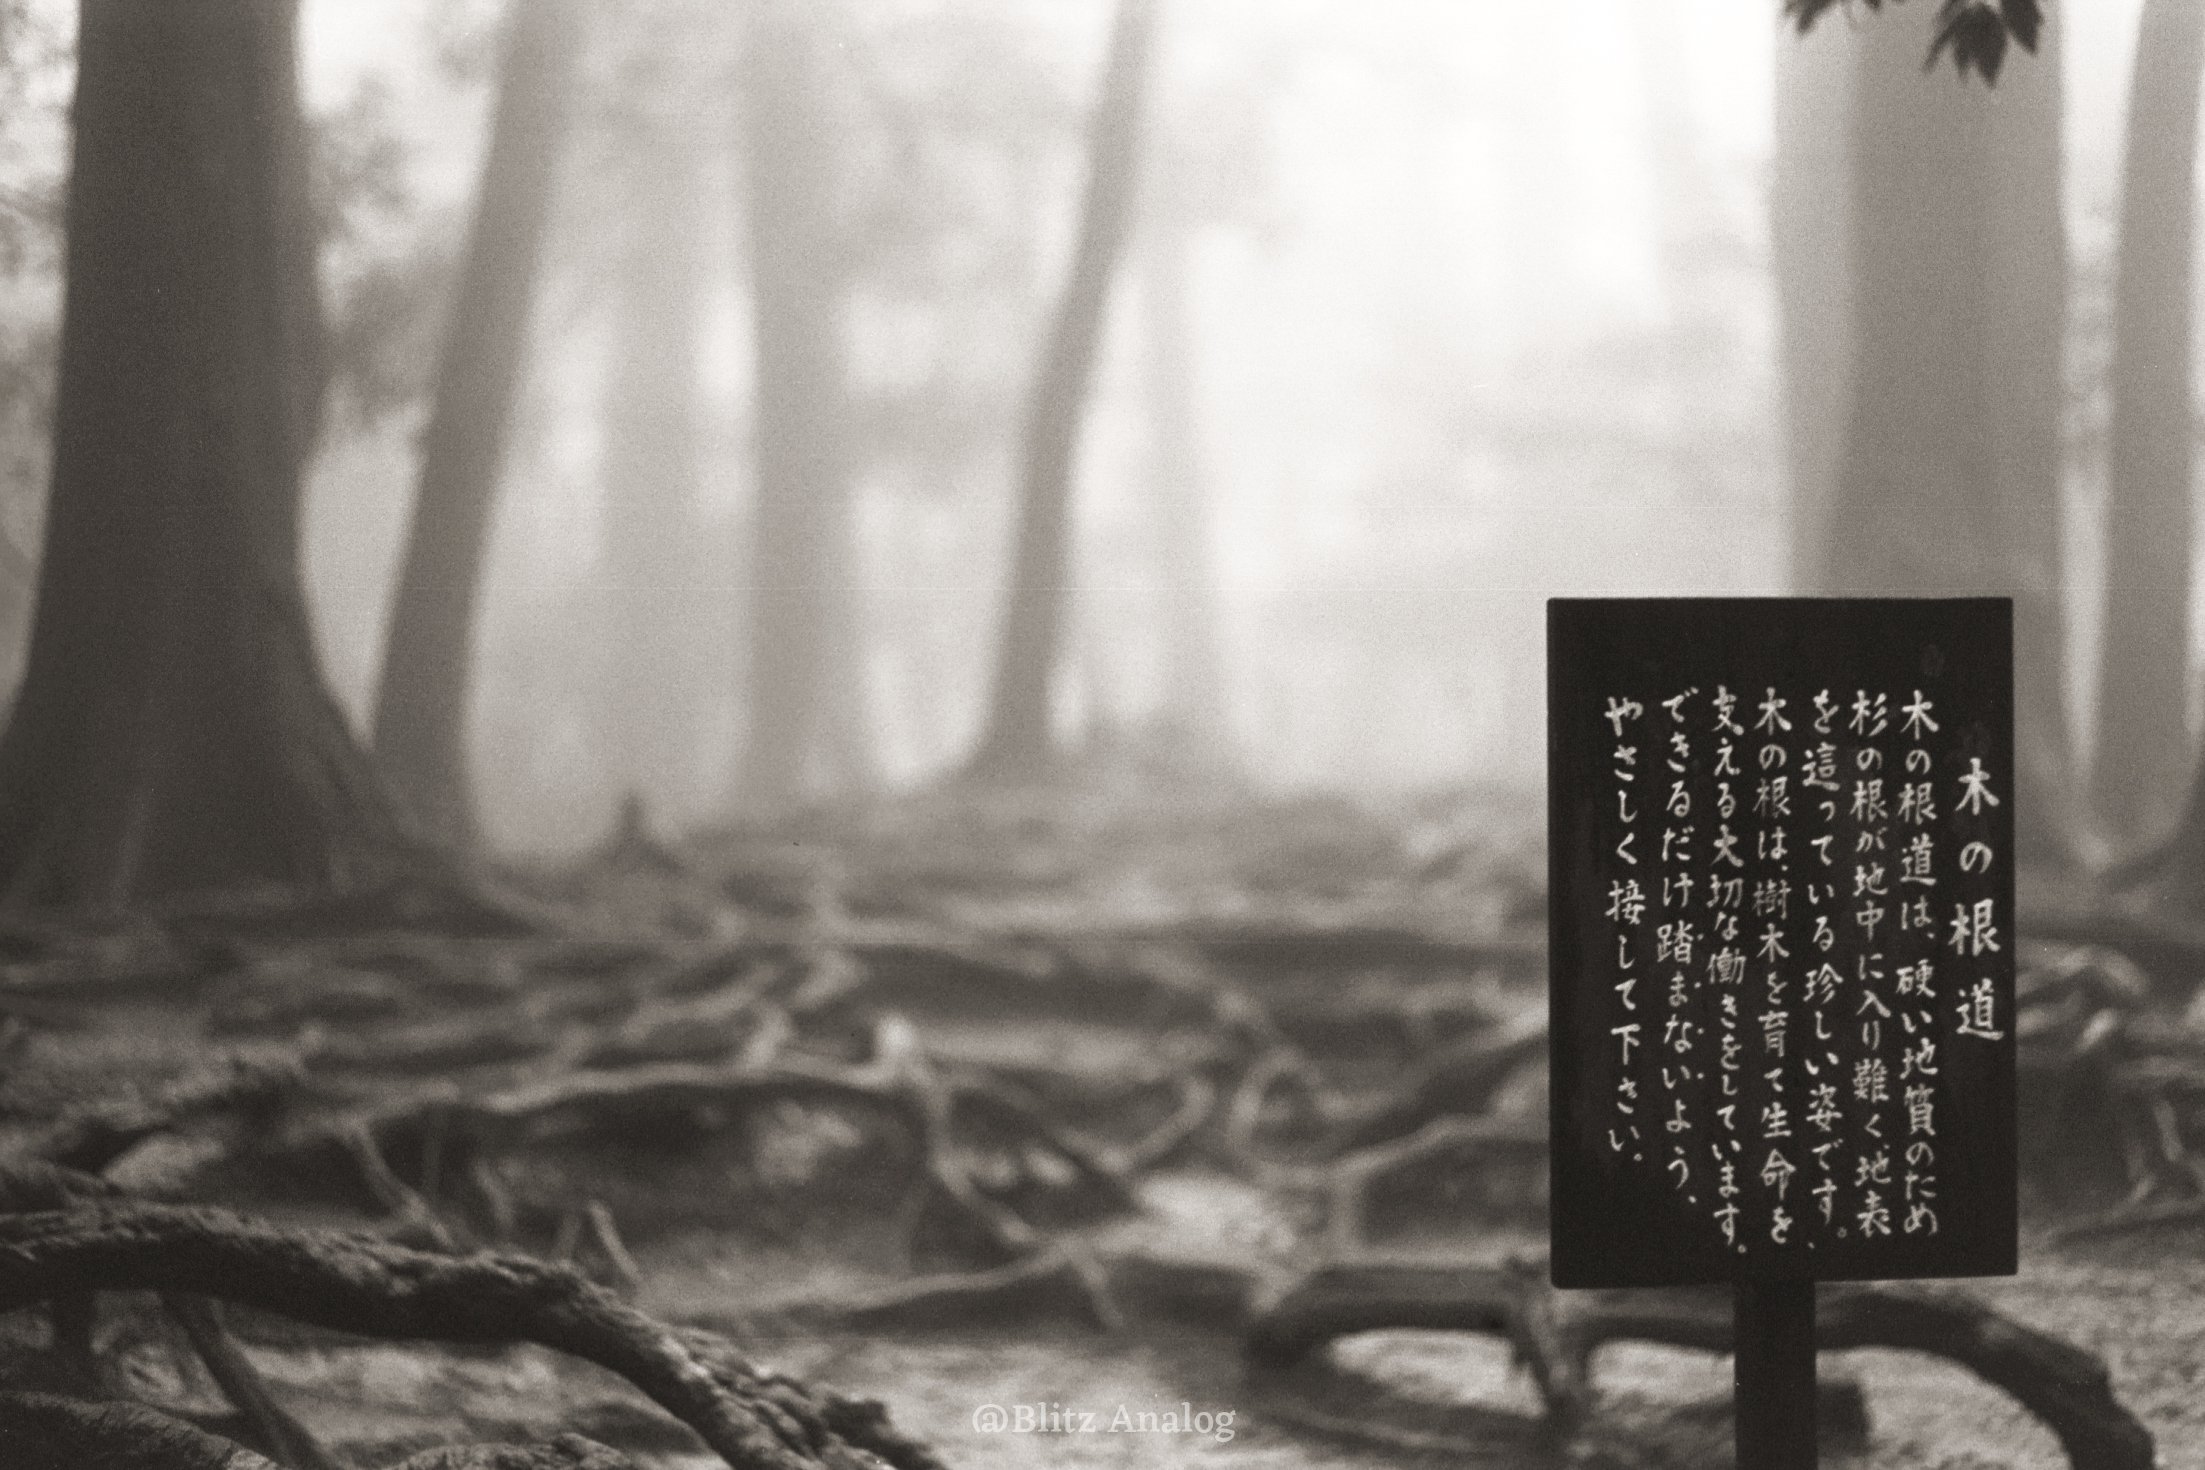 木の根道
木の根道は、硬い地質のため
杉の根が地中に入り難く、地表
を這っている珍しい姿です。
木の根は、樹木を育て生命を、
支える大切な働きをしています。
できるだけ踏まないよう、
やさしく接して下さい。
@Blitz Analog